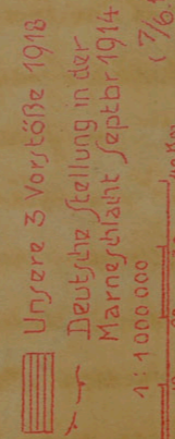 Unsere 3 Vorstöße 1918
Deutsche Stellung in der
Marneschlacht Septbr 1914
1:1000000
(7/6.